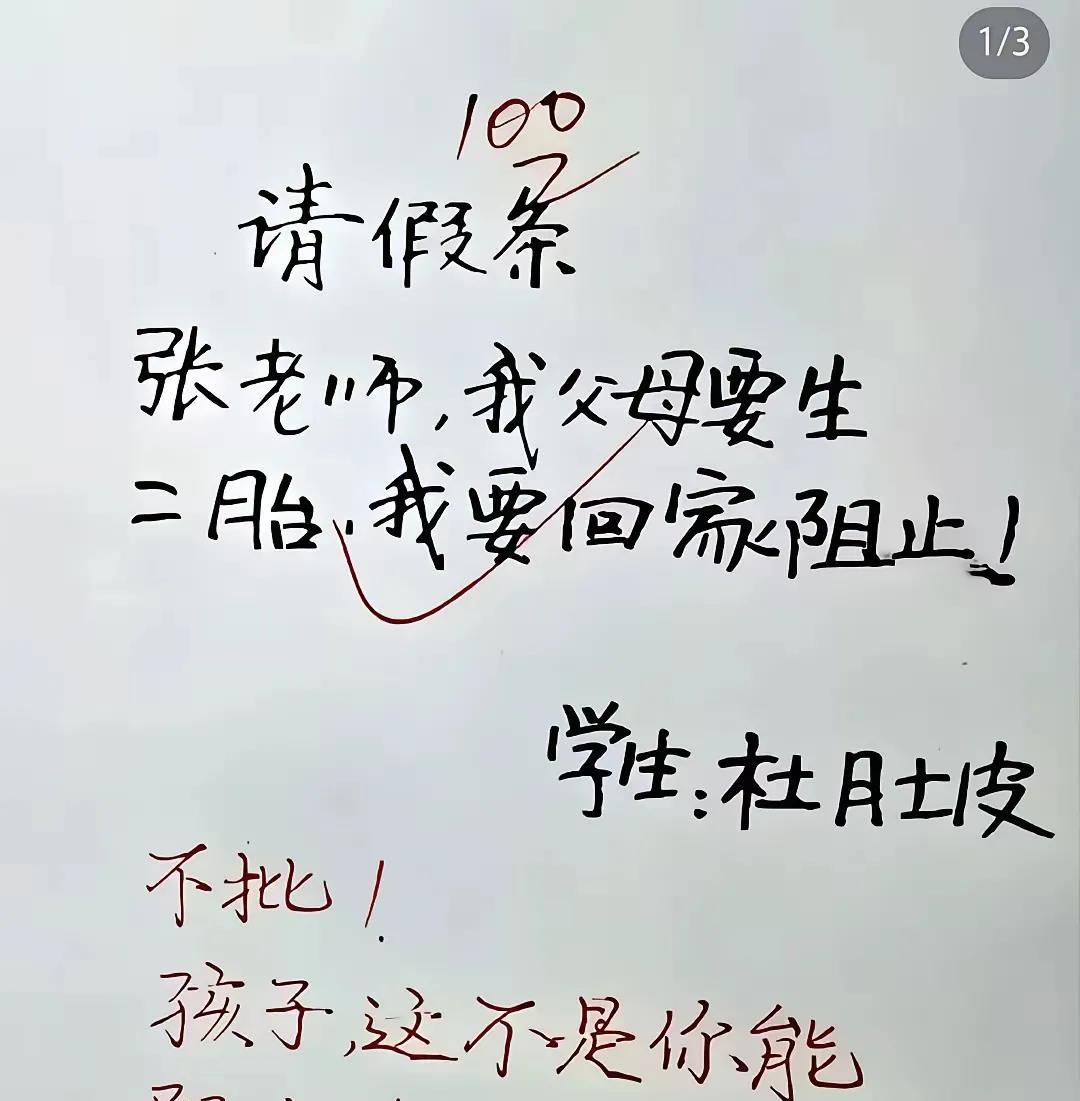 1/3
100
请假条
张老师,我父母要生
二胎,我要回家阻止!
学生:杜月士皮
不批!
孩子,这不是你能